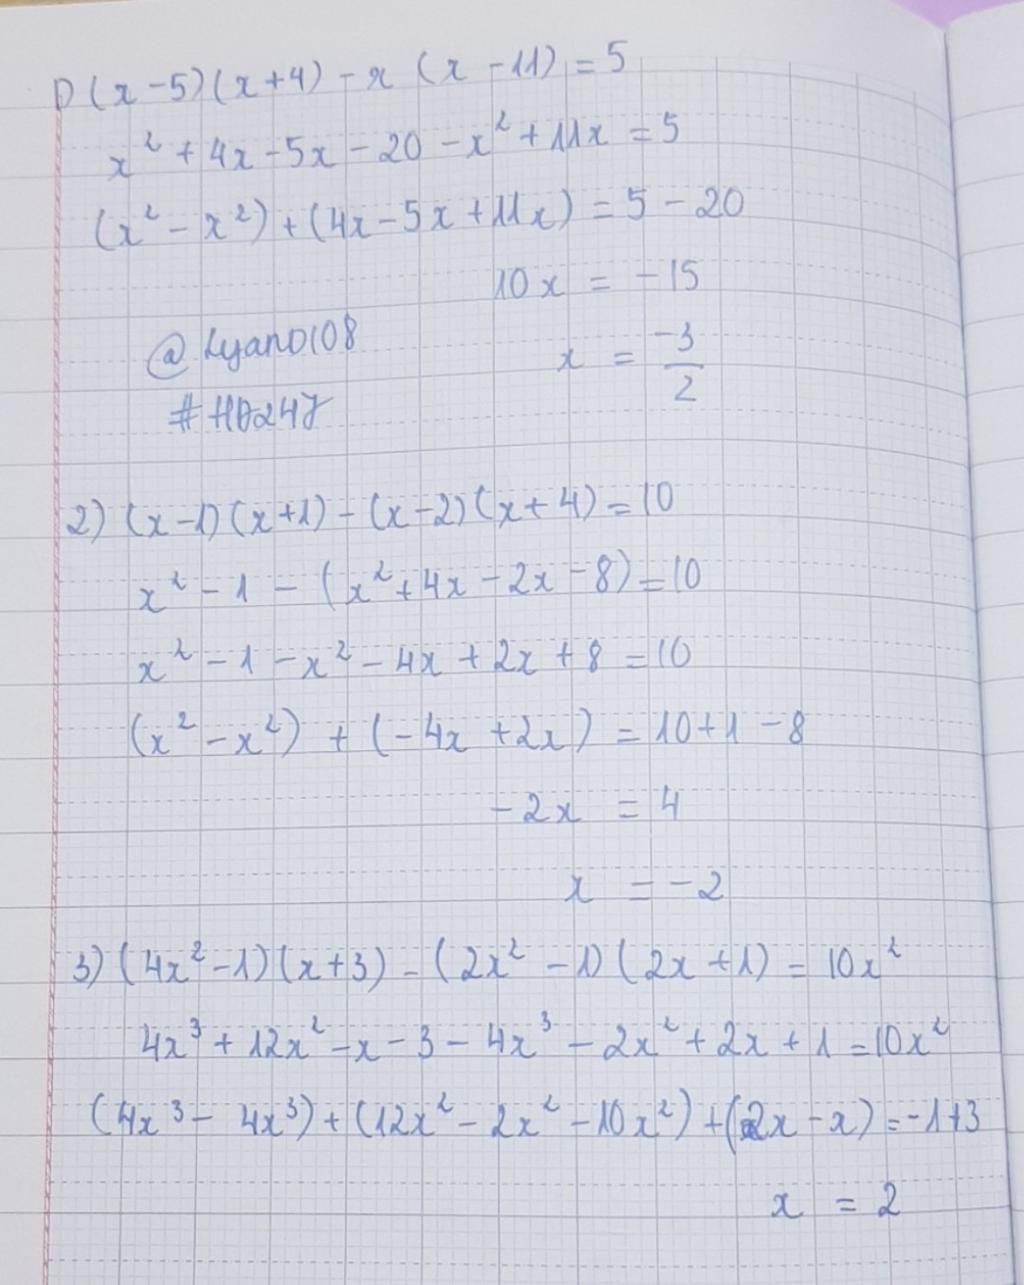 1) (x-5)(x+4) - x (x - 11) = 5
x² + 4x - 5x - 20 - x² + 11x = 5
(x² - x²) + (4x - 5x + 11x) = 5 - 20
10x = -15
x = -3/2
@Lyano108
#HD247
2) (x-1)(x+1) - (x-2)(x+4) = 10
x² - 1 - (x² + 4x - 2x - 8) = 10
x² - 1 - x² - 4x + 2x + 8 = 10
(x² - x²) + (-4x + 2x) = 10 + 1 - 8
-2x = 4
x = -2
3) (4x² - 1)(x+3) - (2x² - 1)(2x + 1) = 10x²
4x³ + 12x² - x - 3 - 4x³ - 2x² + 2x + 1 = 10x²
(4x³ - 4x³) + (12x² - 2x² - 10x²) + (2x - x) = -1+3
x = 2